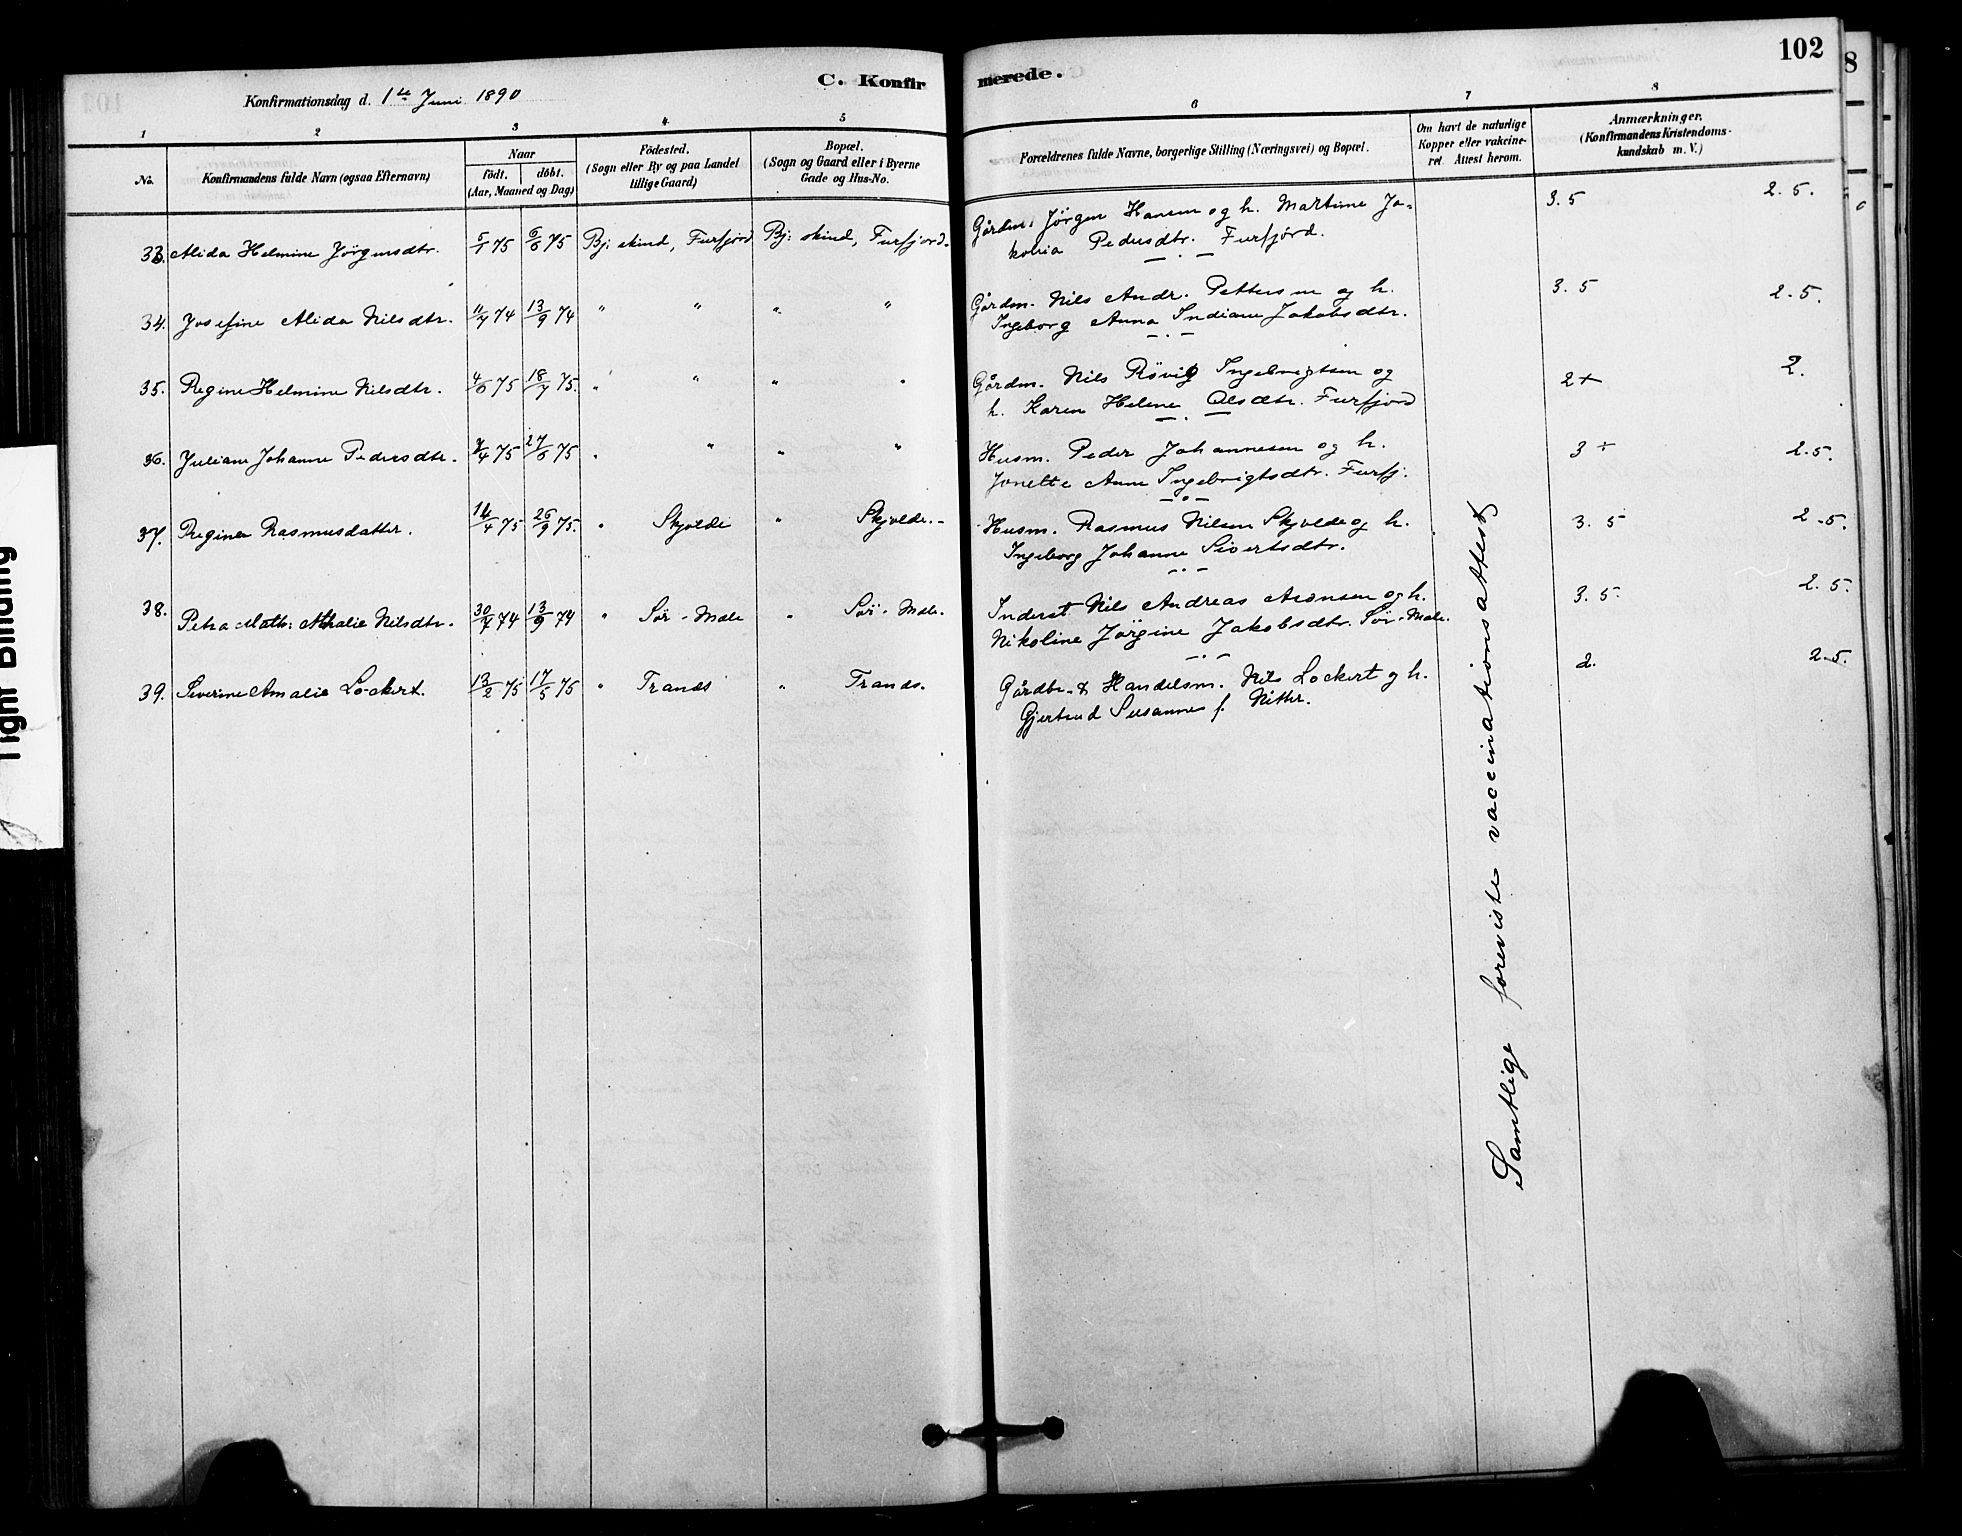 102
C. Konfirmerede.
Konfirmationsdag d. 1ste Juni 1890
1 2 3 4 5 6 7 8
No.
Konfirmandens fulde Navn (ogsaa Efternavn)
Naar
födt. döbt.
(Aar, Maaned og Dag)
Födested.
(Sogn eller By og paa Landet
tillige Gaard)
Bopæl.
(Sogn og Gaard eller i Byerne
Gade og Hus-No.
Forældrenes fulde Navne, borgerlige Stilling (Næringsvei) og Bopæl.
Om havt de naturlige
Kopper eller vakcine-
ret. Attest herom.
Anmærkninger.
(Konfirmandens Kristendoms-
kundskab m. V.)
33. Alida Helmine Jörgensdtr. 5/1 75 6/6 75 Bj: skind, Furfjord Bj: skind, Furfjord. Gårdm. Jörgen Hansen og h. Martine Ja- 3.5 2.5.
kobia Pedersdtr. Furfjord.
34. Josefine Alida Nilsdtr. 11/7 74 13/9 74 " " " " Gårdm. Nils Andr. Pettersen og h. 3.5 2.5.
Ingeborg Anna Indiane Jakobsdtr.
35. Regine Helmine Nilsdtr. 4/6 75 18/7 75. " " " " Gårdm. Nils Rövig Ingebrigtsen og 2+ 2.
h. Karen Helene Olsdtr. Furfjord
36. Juliane Johanne Pedersdtr. /4 75 27/6 75 " " " " Husm. Peder Johannesen og h. 3+ 2.5.
Jonette Anne Ingebrigtsdtr. Furfj.
37. Regine Rasmusdatter. 14/4 75 26/9 75. " Skjolde " Skjolde. Husm. Rasmus Nilsen Skjolde og h. 3.5 2.5.
Ingeborg Johanne Sivertsdtr.
38. Petra Math: Athalie Nilsdtr. 30/7 74 13/9 74 " Sör-Mele " Sör-Mele. Inderst Nils Andreas Aronsen og h. 3.5 2.5.
Nikoline Jörgine Jakobsdtr. Sör-Mele.
39. Severine Amalie Lockert. 13/2 75 17/5 75 " Trands " Trands. Gårdbr. & Handelsm. Nils Lockert og h. 2. 2.5.
Gjertrud Susanne f. Nitter.
Samtlige foreviste vaccinationsattest
Tight Binding
8